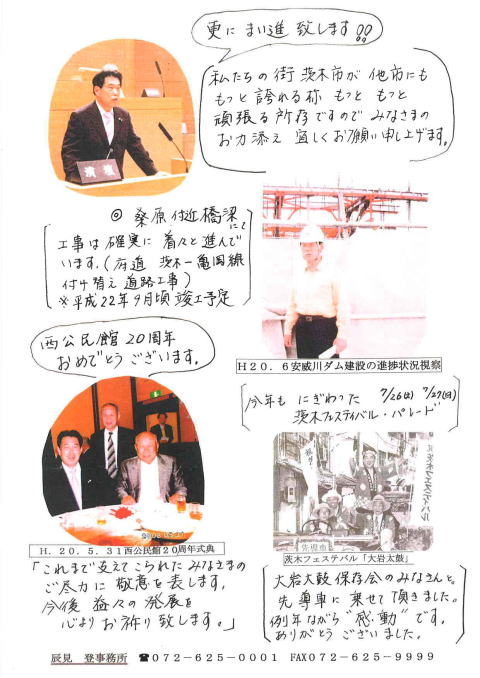 更に まい進 致します!!
私たちの街 茨木市が 他市にも
もっと 誇れる様 もっと もっと
頑張る所存ですので みなさまの
お力添え 宜しくお願い申し上げます。
演壇
◎ 桑原付近橋梁にて
工事は確実に 着々と進んで
います。(府道 茨木ー亀岡線
付け替え道路工事)
※平成22年9月頃竣工予定
H20.6安威川ダム建設の進捗状況視察
西公民館20周年
おめでとうございます。
H.20.5.31西公民館20周年式典
「これまで支えてこられたみなさまの
ご尽力に 敬意を表します。
今後 益々の 発展を
心よりお祈り致します。」
今年も にぎわった 7/26(土) 7/27(日)
茨木フェスティバル・パレード
茨木フェスティバル
先導車
茨木フェステバル「大岩太鼓」
大岩太鼓保存会のみなさんと。
先導車に 乗せて頂きました。
例年ながら“感動”です。
ありがとうございました。
辰見 登事務所 ☎072-625-0001 FAX072-625-9999